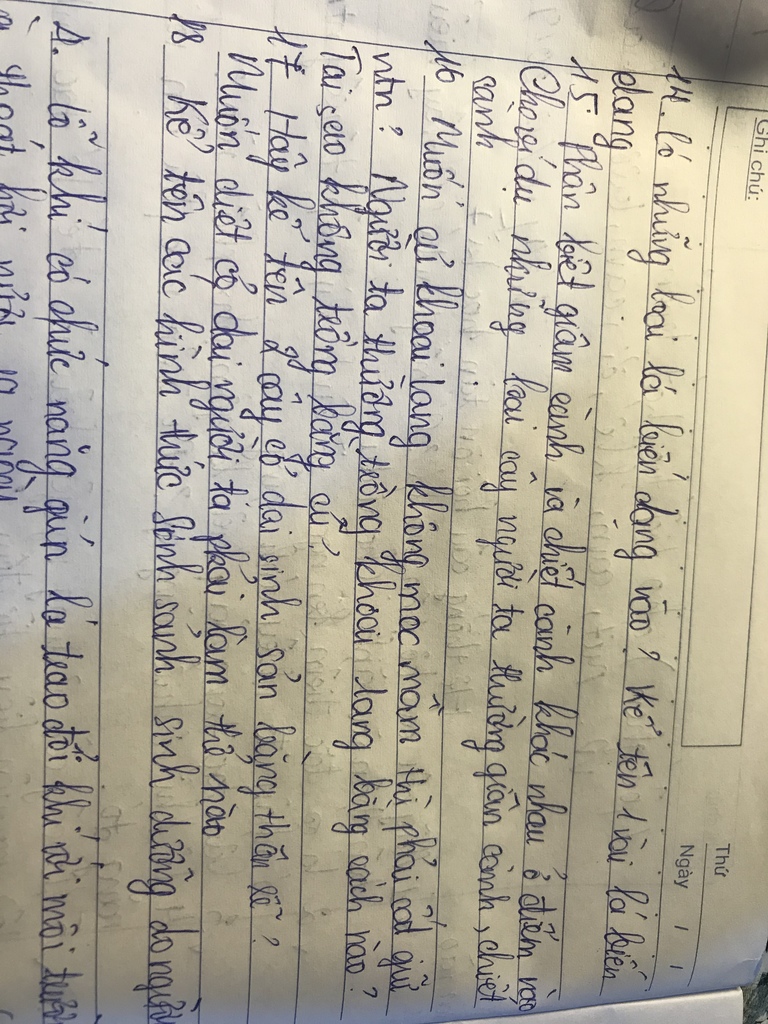 Ghi chú:
Thứ
Ngày / /
14. Có những loại lá biến dạng nào? Kể tên 1 vài lá biến
dạng
15. Phân biệt giâm cành và chiết cành khác nhau ở điểm nào
Cho ví dụ những loại cây người ta thường giâm cành, chiết
cành
16 Muốn củ khoai lang không mọc mầm thì phải cất giữ
ntn? Người ta thường trồng khoai lang bằng cách nào?
Tại sao không trồng bằng củ?
17 Hãy kể tên 2 cây cỏ dại sinh sản bằng thân rễ?
Muốn diệt cỏ dại người ta phải làm thế nào
18 Kể tên các hình thức sinh sản sinh dưỡng do người
1. Lỗ khí có chức năng giúp lá trao đổi khí với môi trường
thoát hơi nước ra ngoài